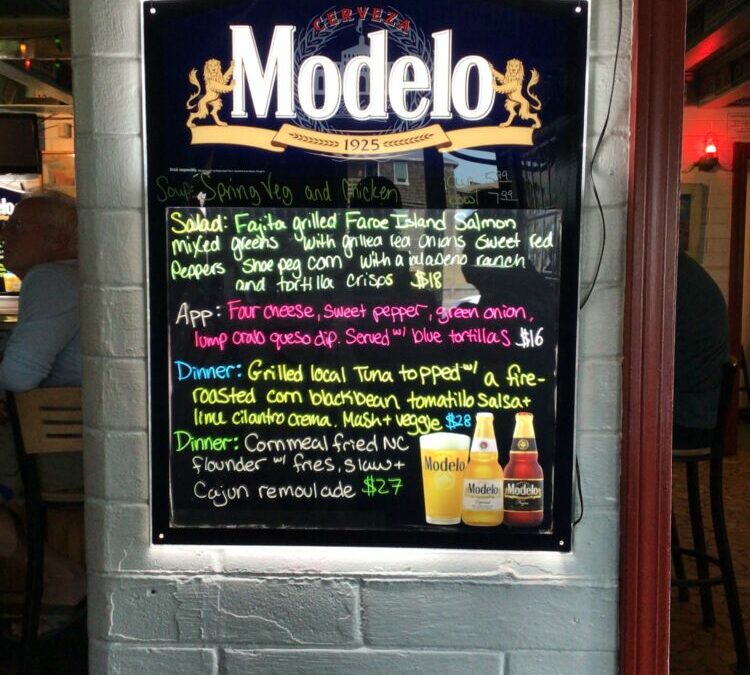 CERVEZA
Modelo
1925
Soup: Spring Veg and Chicken
cup 5.99
bowl 7.99
Salad: Fajita grilled Faroe Island Salmon
mixed greens with grilled red onions sweet red
Peppers shoe peg corn with a jalapeno ranch
and tortilla crisps $18
App: Four cheese, sweet pepper, green onion,
lump crab queso dip. Served w/ blue tortillas $16
Dinner: Grilled local Tuna topped w/ a fire-
roasted corn blackbean tomatillo salsa +
lime cilantro crema. Mash + veggie $28
Dinner: Cornmeal fried NC
flounder w/ fries, slaw +
Cajun remoulade $27
Modelo
Modelo
Modelo